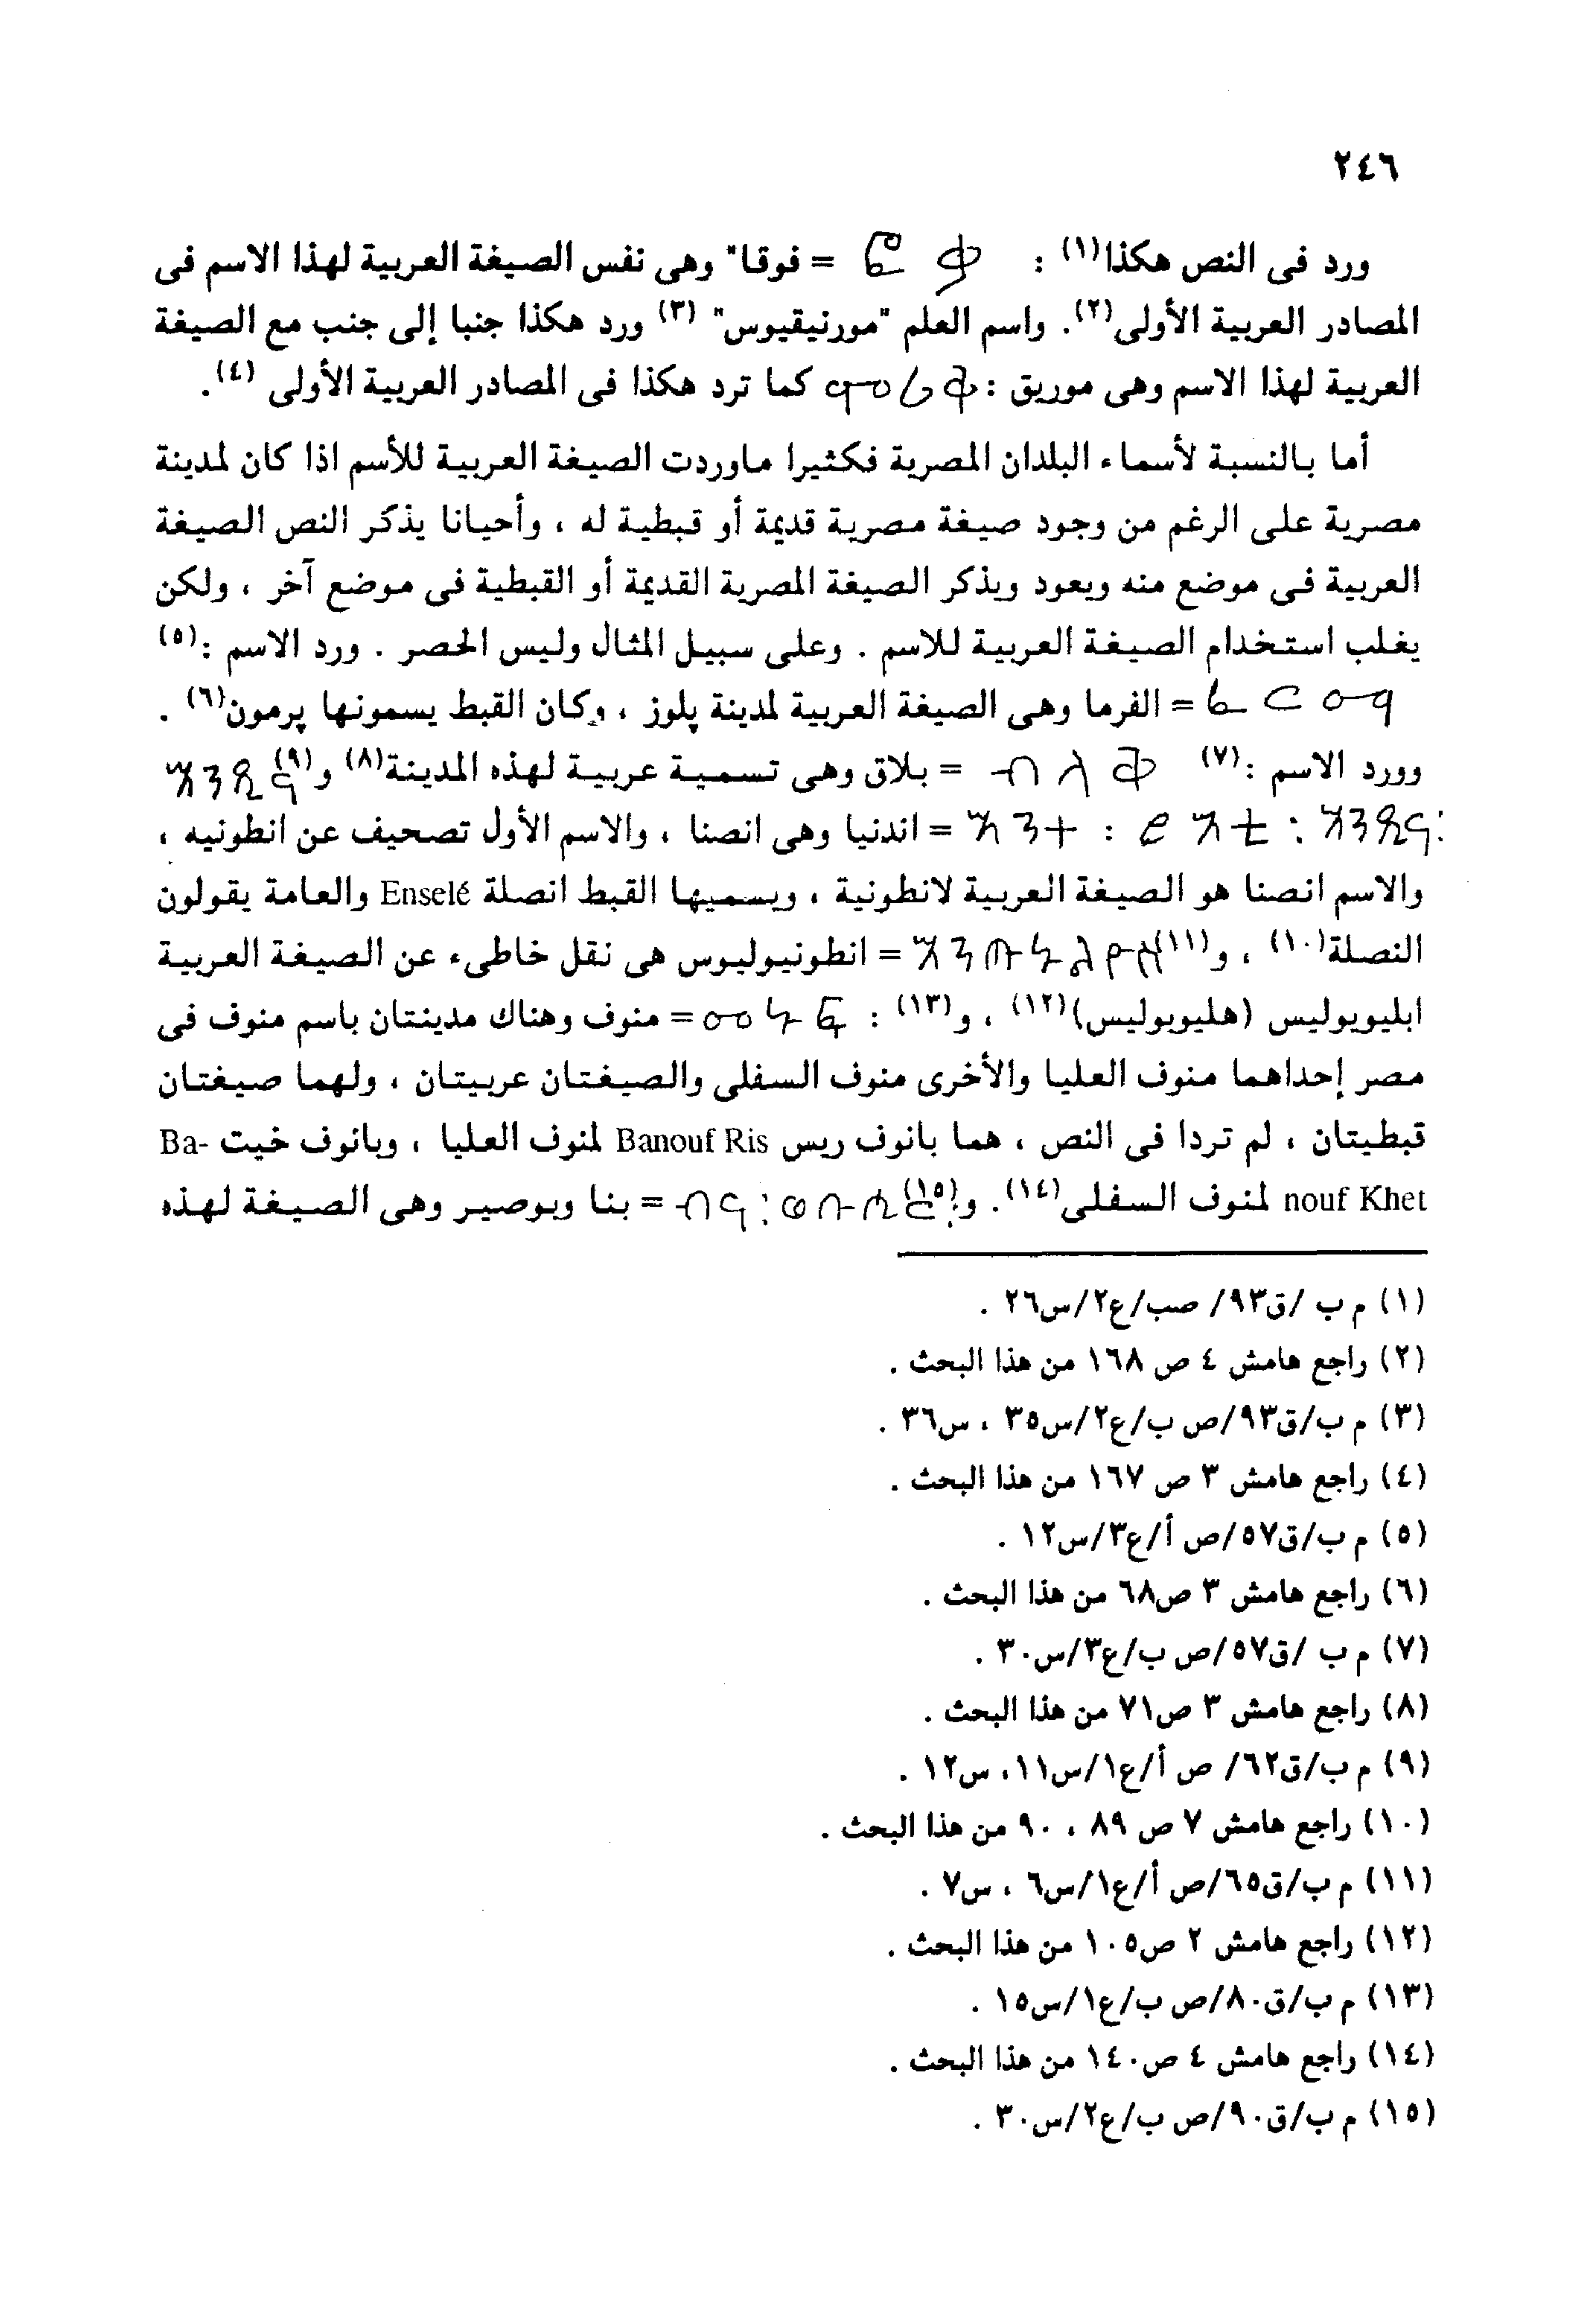 ٢٤٦
ورد فى النص هكذا(١) : ፎቃ = فوقا" وهى نفس الصيغة العربية لهذا الاسم فى
المصادر العربية الأولى(٢). واسم العلم "مورنيقيوس" (٣) ورد هكذا جنبا إلى جنب مع الصيغة
العربية لهذا الاسم وهى موريق : كما ترد هكذا فى المصادر العربية الأولى (٤).
أما بالنسبة لأسماء البلدان المصرية فكثيرا ماوردت الصيغة العربية للأسم اذا كان لمدينة
مصرية على الرغم من وجود صيغة مصرية قديمة أو قبطية له ، وأحيانا يذكر النص الصيغة
العربية فى موضع منه ويعود ويذكر الصيغة المصرية القديمة أو القبطية فى موضع آخر ، ولكن
يغلب استخدام الصيغة العربية للاسم . وعلى سبيل المثال وليس الحصر . ورد الاسم :(٥)
= الفرما وهى الصيغة العربية لمدينة پلوز ، وكان القبط يسمونها پرمون(٦) .
وورد الاسم :(٧) = بلاق وهى تسمية عربية لهذه المدينة(٨) و(٩)
= اندنيا وهى انصنا ، والاسم الأول تصحيف عن انطونيه ،
والاسم انصنا هو الصيغة العربية لانطونية ، ويسميها القبط انصلة Enselé والعامة يقولون
النصلة(١٠) ، و(١١) = انطونيوليوس هى نقل خاطىء عن الصيغة العربية
ابليوبوليس (هليوبوليس)(١٢) ، و(١٣) : = منوف وهناك مدينتان باسم منوف فى
مصر إحداهما منوف العليا والأخرى منوف السفلى والصيغتان عربيتان ، ولهما صيغتان
قبطيتان ، لم تردا فى النص ، هما بانوف ريس Banouf Ris لمنوف العليا ، وبانوف خيت Ba-
nouf Khet لمنوف السفلى(١٤). و(١٥) = بنا وبوصير وهى الصيغة لهذه
(١) م ب /ق٩٣/ صب/ع٢/س٢٦ .
(٢) راجع هامش ٤ ص ١٦٨ من هذا البحث .
(٣) م ب/ق٩٣/ص ب/ع٢/س٣٥ ، س٣٦ .
(٤) راجع هامش ٣ ص ١٦٧ من هذا البحث .
(٥) م ب/ق٥٧/ص أ/ع٣/س١٢ .
(٦) راجع هامش ٣ ص٦٨ من هذا البحث .
(٧) م ب /ق٥٧/ص ب/ع٣/س٣٠ .
(٨) راجع هامش ٣ ص٧١ من هذا البحث .
(٩) م ب/ق٦٢/ ص أ/ع١/س١١، س١٢ .
(١٠) راجع هامش ٧ ص ٨٩ ، ٩٠ من هذا البحث .
(١١) م ب/ق٦٥/ص أ/ع١/س٦ ، س٧ .
(١٢) راجع هامش ٢ ص١٠٥ من هذا البحث .
(١٣) م ب/ق٨٠/ص ب/ع١/س١٥ .
(١٤) راجع هامش ٤ ص١٤٠ من هذا البحث .
(١٥) م ب/ق٩٠/ص ب/ع٢/س٣٠ .